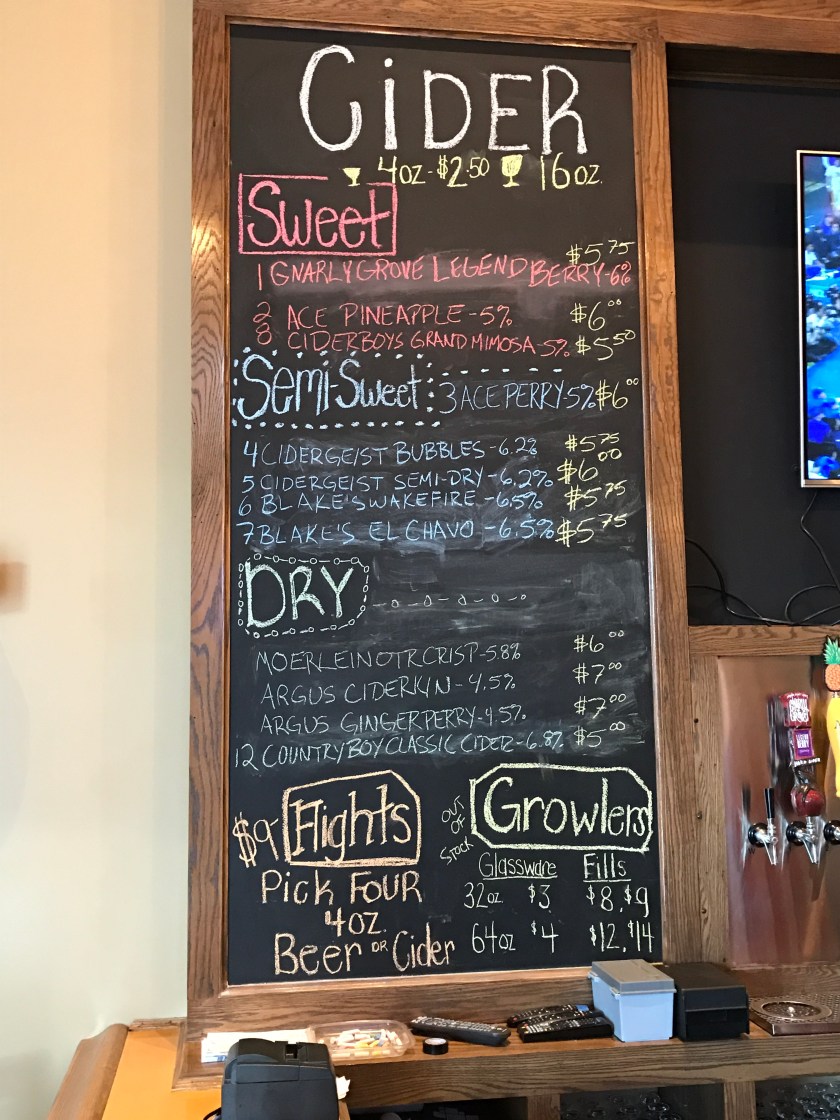 CiDER
4oz - $2.50 16oz.
Sweet
$5.75
1 GNARLY GROVE LEGEND BERRY - 6%
2 ACE PINEAPPLE - 5% $6.00
8 CIDERBOYS GRAND MIMOSA - 5% $5.50
Semi-Sweet 3 ACE PERRY - 5% $6.00
4 CIDERGEIST BUBBLES - 6.2% $5.75
5 CIDERGEIST SEMI-DRY - 6.2% $6.00
6 BLAKE'S WAKEFIRE - 6.5% $5.75
7 BLAKE'S EL CHAVO - 6.5% $5.75
DRY
MOERLEIN OTR CRISP - 5.8% $6.00
ARGUS CIDERKIN - 4.5% $7.00
ARGUS GINGERPERRY - 4.5% $7.00
12 COUNTRY BOY CLASSIC CIDER - 6.8% $5.00
$9 Flights
Pick FOUR
4oz.
Beer or Cider
OUT OF STOCK
Growlers
Glassware Fills
32oz $3 $8, $9
64oz $4 $12, $14